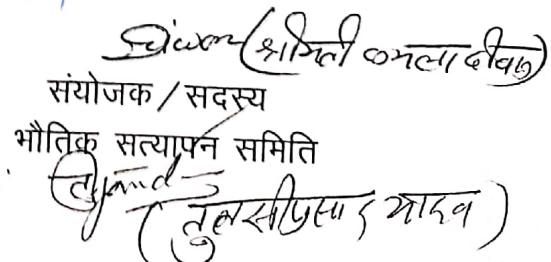 Diwan (श्रीमती कमला दीवान)
संयोजक / सदस्य
भौतिक सत्यापन समिति
(तुलसीप्रसाद यादव)